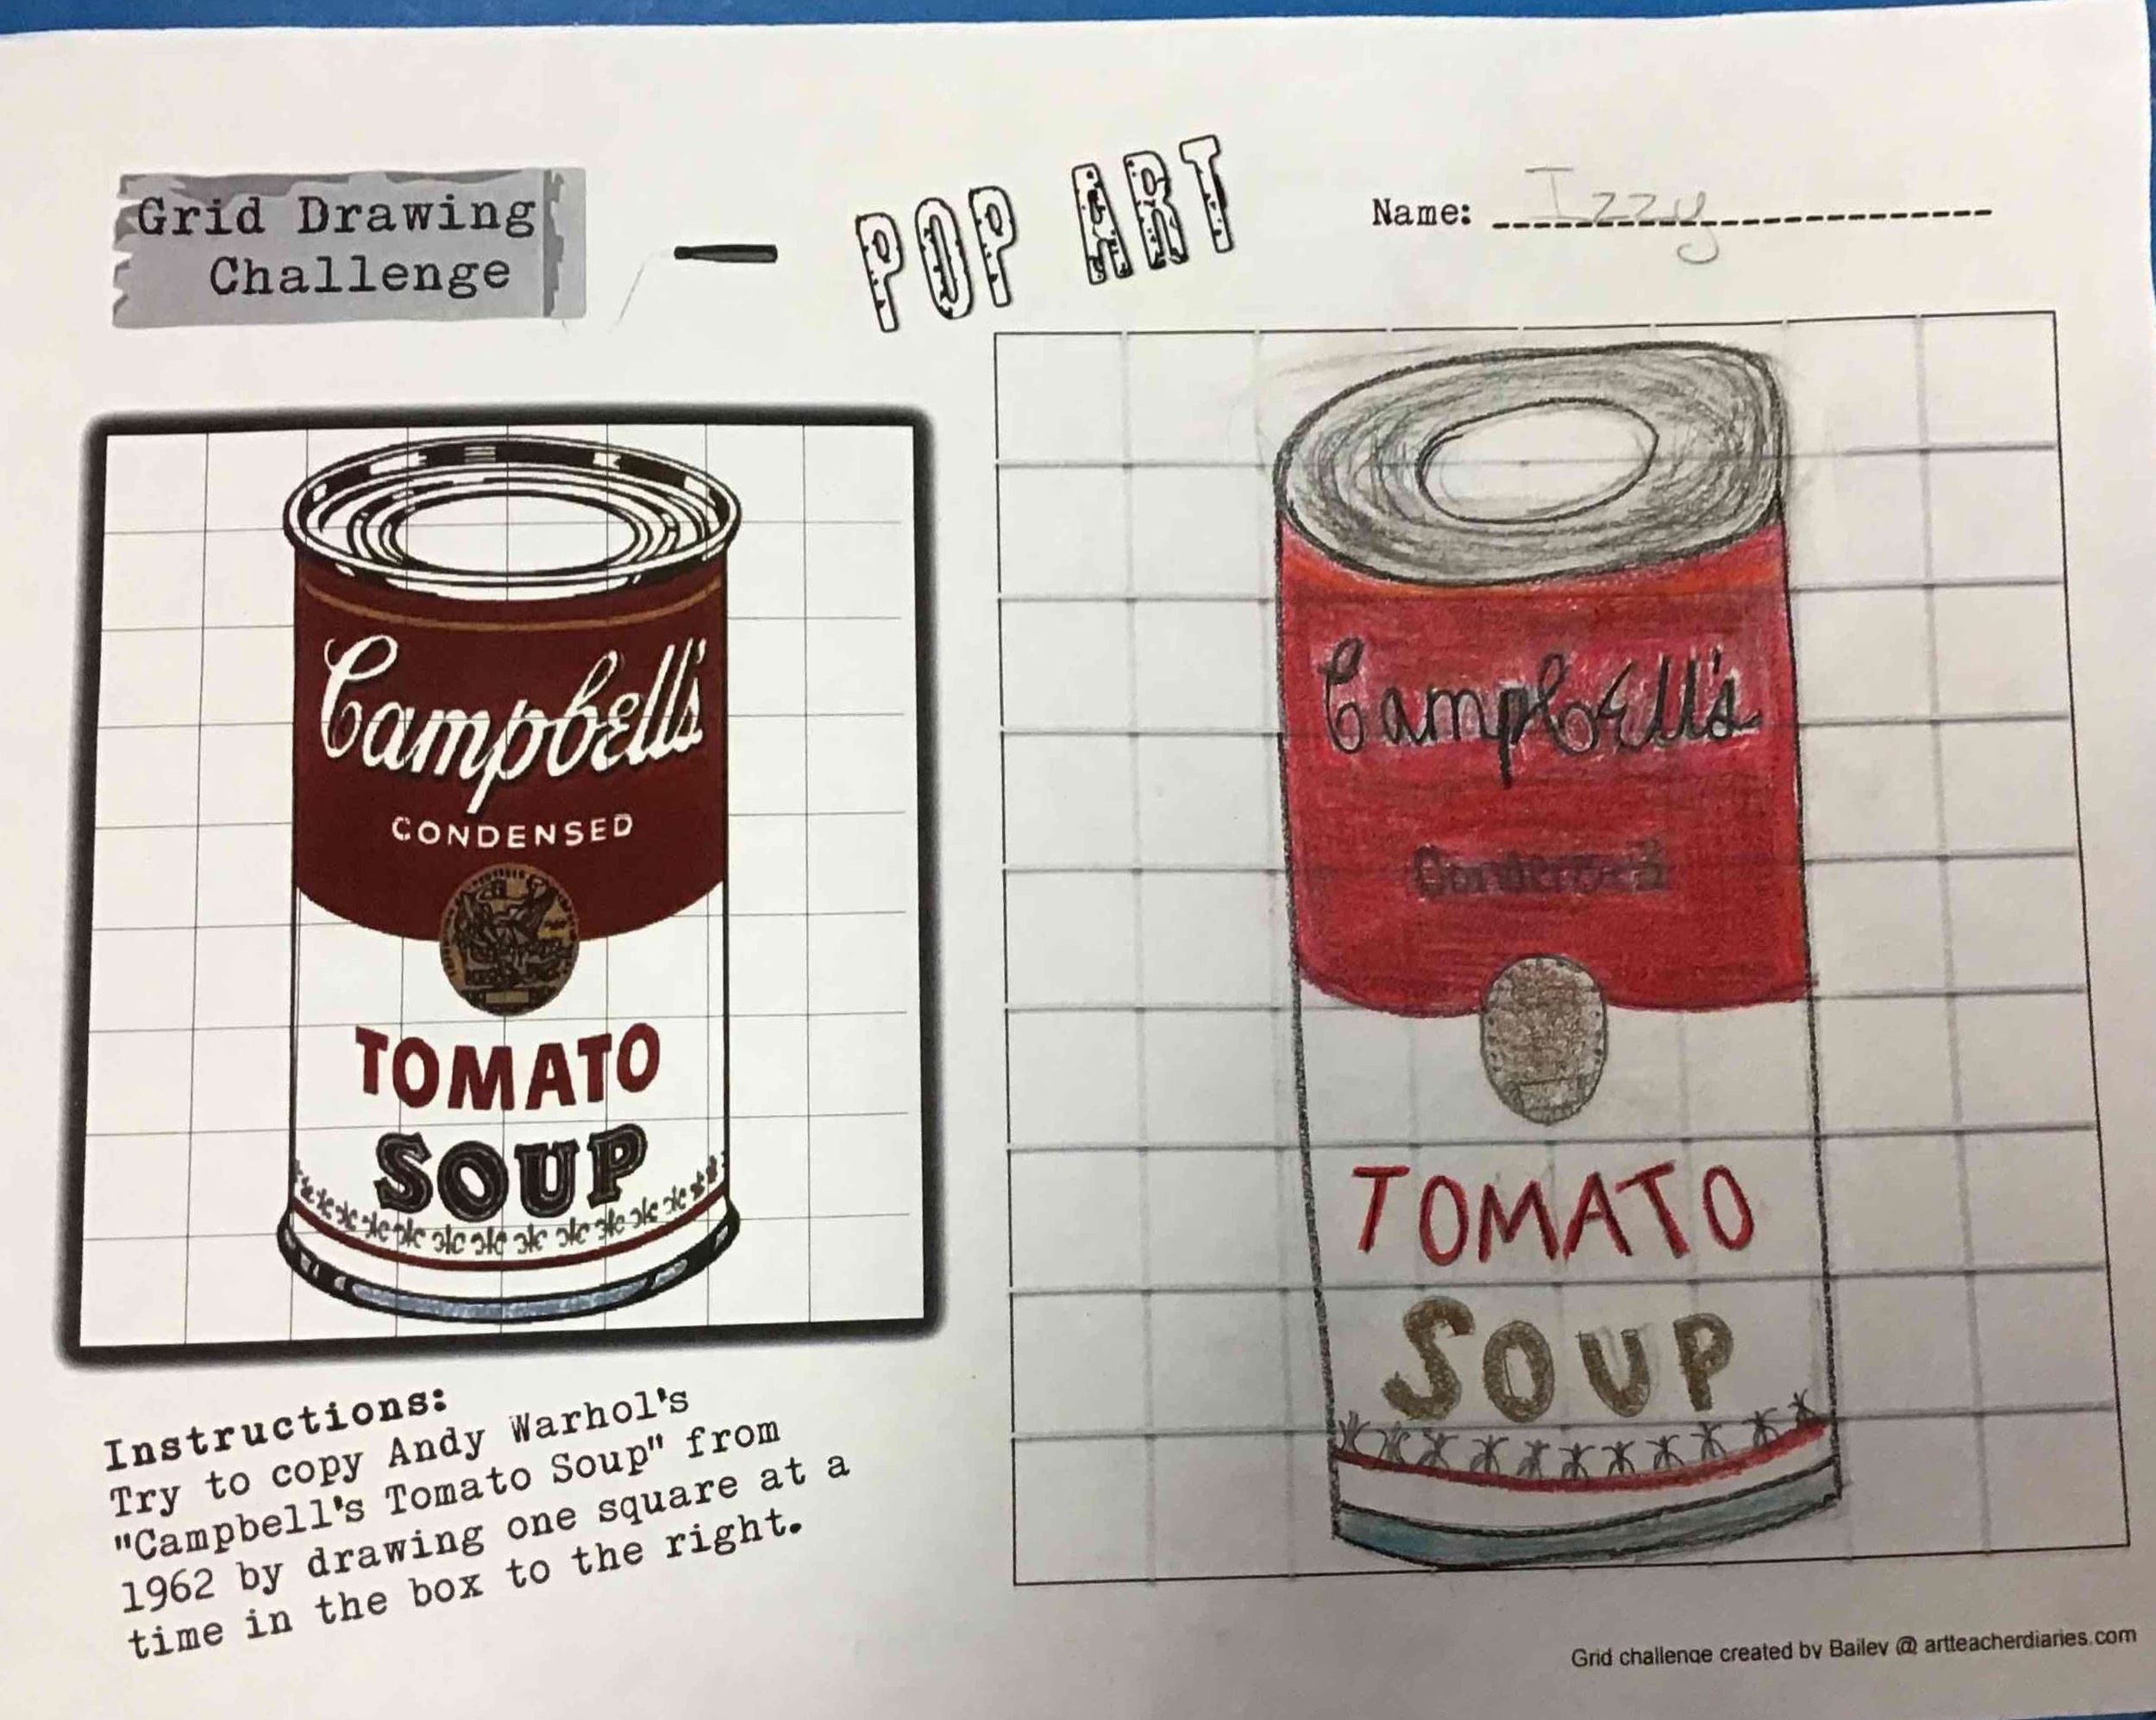 Grid Drawing
Challenge
POP ART
Name: Izzy
Campbell's
CONDENSED
TOMATO
SOUP
Campbell's
Condensed
TOMATO
SOUP
Instructions:
Try to copy Andy Warhol's
"Campbell's Tomato Soup" from
1962 by drawing one square at a
time in the box to the right.
Grid challenge created by Bailey @ artteacherdiaries.com